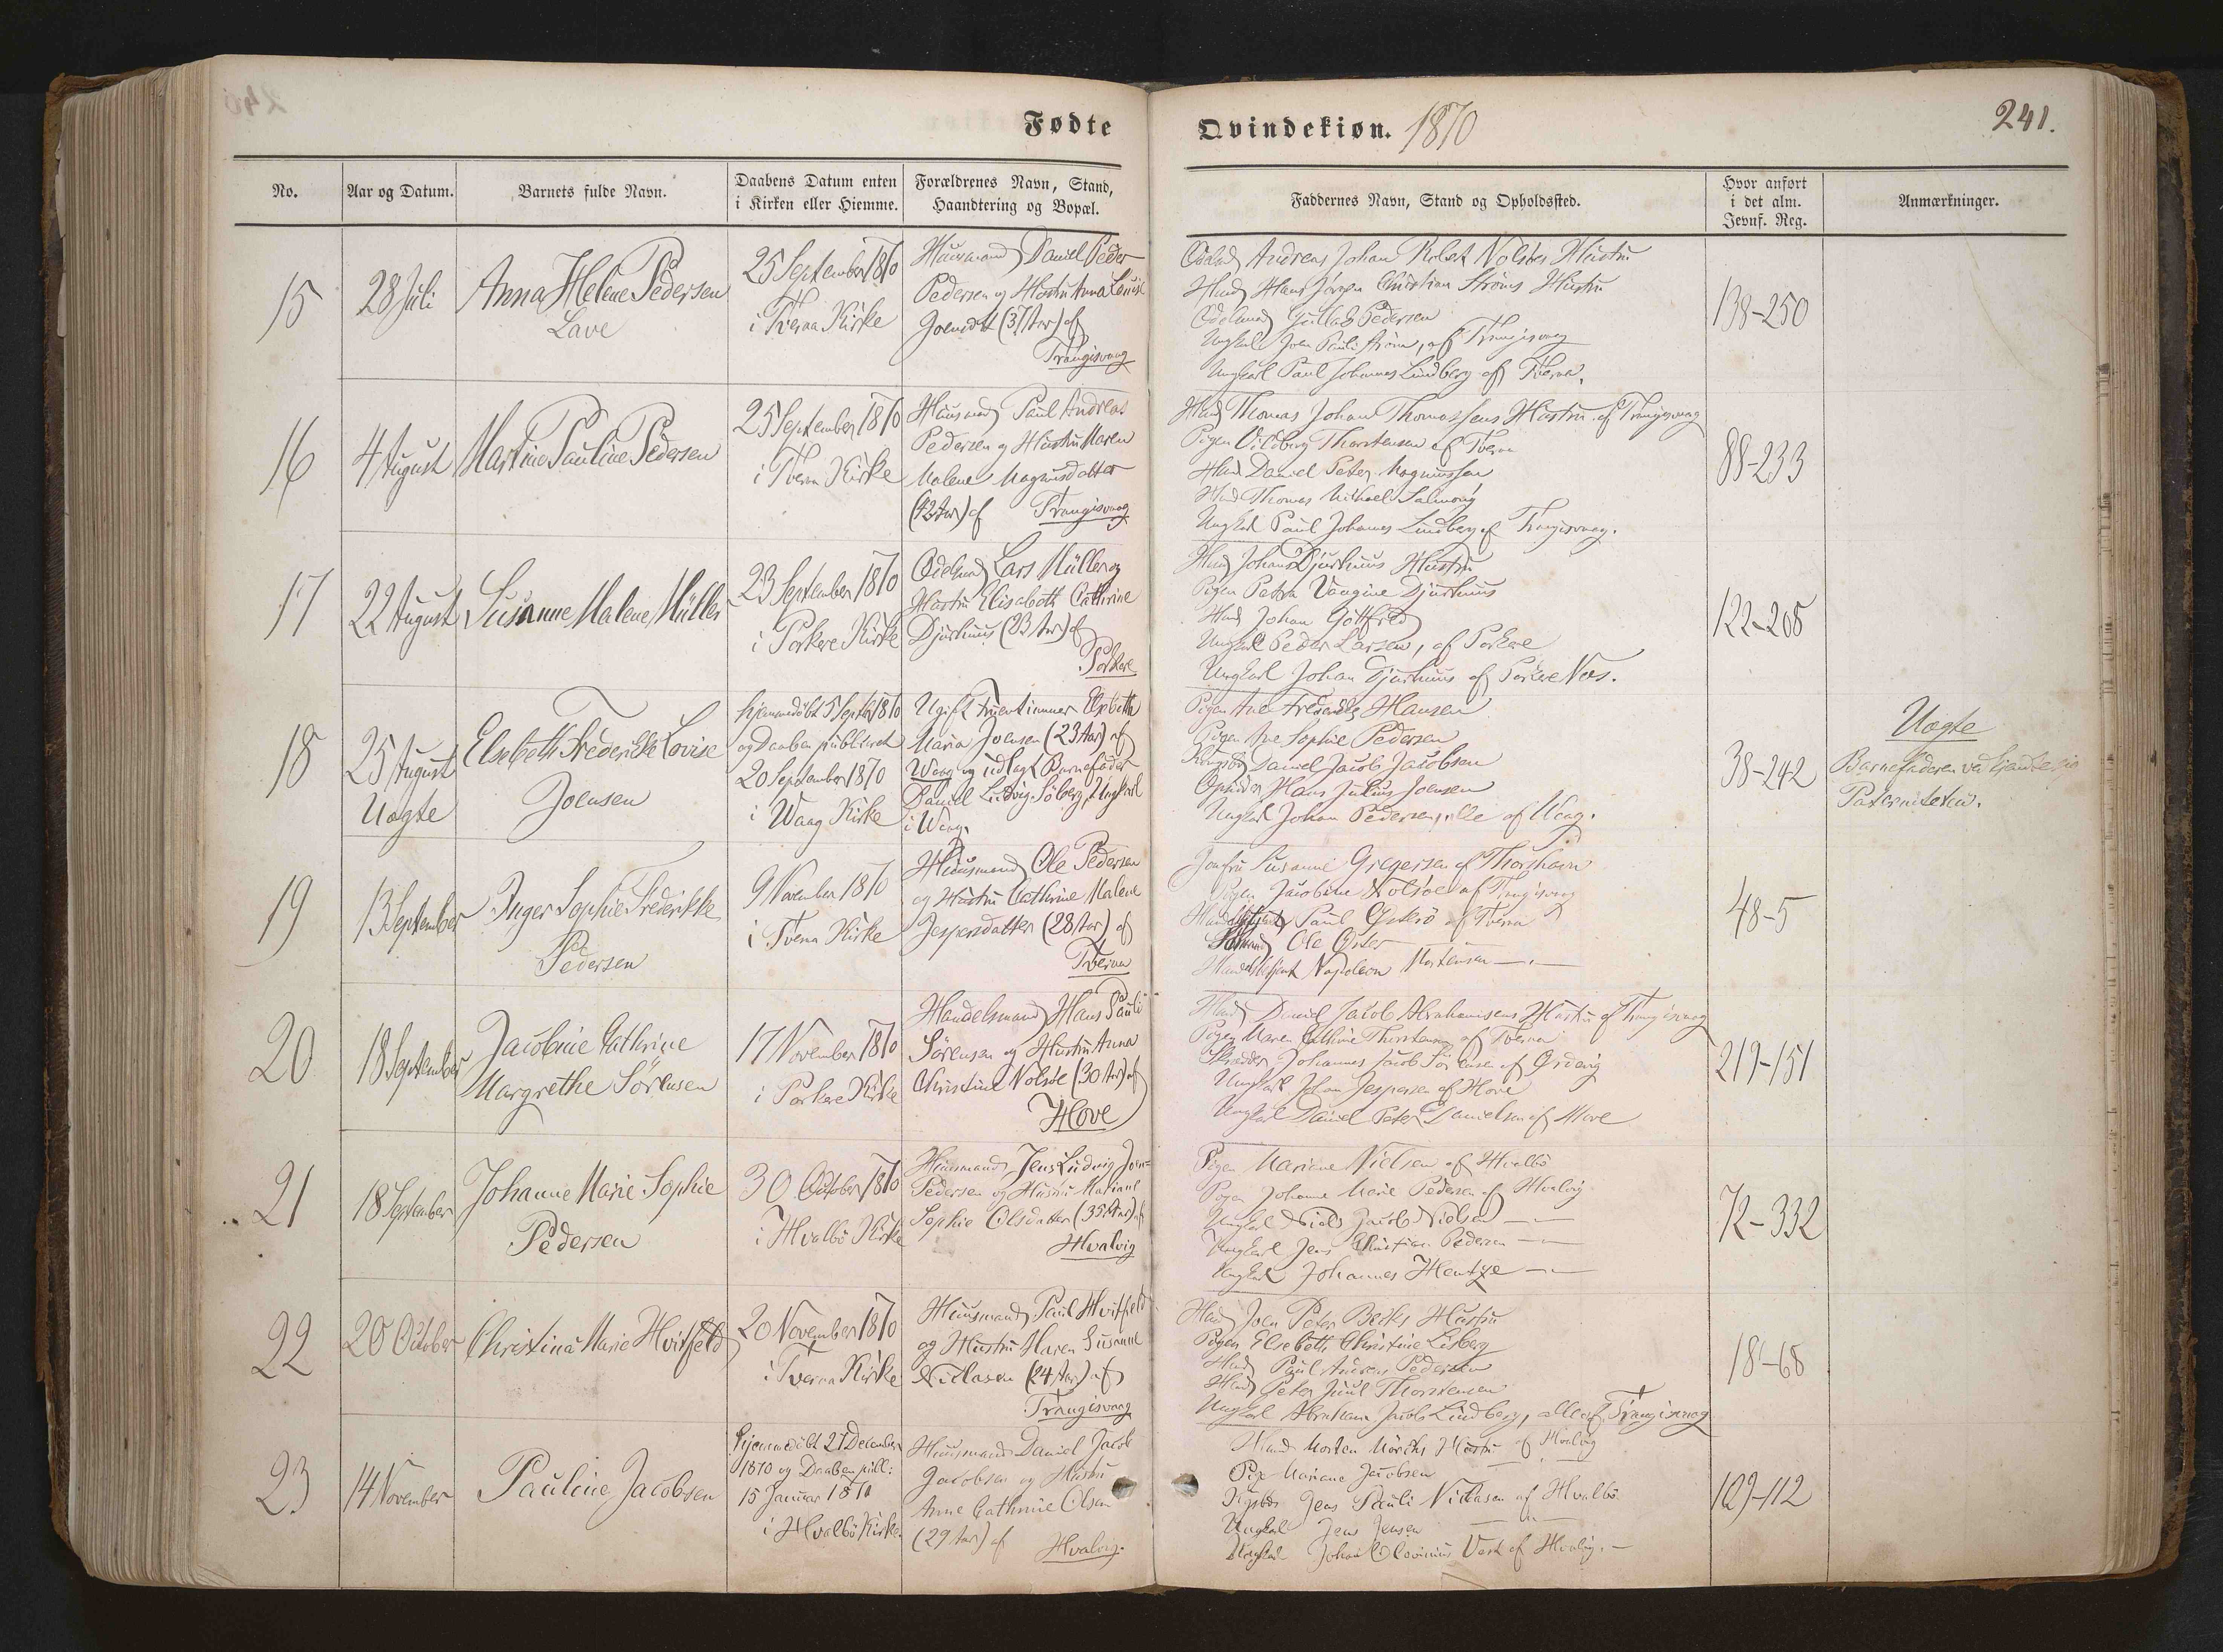 Fødte
Qvindekiøn. 1870
241.
No.
Aar og Datum.
Barnets fulde Navn.
Daabens Datum enten
i Kirken eller Hiemme.
Forældrenes Navn, Stand,
Haandtering og Bopæl.
Faddernes Navn, Stand og Opholdssted.
Hvor anført
i det alm.
Jevnf. Reg.
Anmærkninger.
15
28 Juli
Anna Helene Pedersen
Lave
25 September 1870
i Tveraa Kirke
Huusmand Daniel Peder
Pedersen og Hustru Anna Louise
Joensdtt (37 Aar) af
Trangisvaag
Andreas Johan Volsøes Hustru
Hans Jørgen Christian Strøms Hustru
Pedersen
Ungkarl Joen Pauli Strøm, af Trangisvaag
Ungkarl Paul Johannes Lindberg af Tveraa.
138-250
16
4 August
Martine Pauline Pedersen
25 September 1870
i Tveraa Kirke
Huusmand Paul Andreas
Pedersen og Hustru Maren
Malene Magnusdatter
(42 Aar) af Trangisvaag
Hmd Thomas Johan Thomassens Hustru af Trangisvaag
Pigen Thorstensen af Tveraa
Hmd Daniel Peter Magnussen
Hmd Thomas Michael
Ungkarl Paul Johannes Lindberg af Trangisvaag.
88-233
17
22 August
Susanne Malene Müller
23 September 1870
i Porkere Kirke
Odelsmd Lars Müller og
Hustru Elisabeth Cathrine
Djurhuus (23 Aar) af
Porkere
Hmd Johans Djurhuus Hustru
Pigen Petra Djurhuus
Hmd Johan Gottfred
Ungkarl Peder Larsen, af Porkere
Ungkarl Johan Djurhuus af Porkere Næs.
122-208
18
25 August
Uægte
Elsebeth Frederikke Lovise
Joensen
hjemmedøbt 5 Septbr 1870
og Daaben publiceret
20 September 1870
i Waag Kirke
Ugift Fruentimmer Elsebeth
Maria Joensen (23 Aar) af
Waag og udlagt Barnefader
Daniel Ludvig Søberg, Ungkarl
i Waag.
Pigen Ane Hansen
Pigen Ane Sophie Pedersen
Daniel Jacob Jacobsen
Hans Julius Joensen
Ungkarl Johan Pedersen, alle af Waag.
38-242
Uægte
Barnefaderen vedkjendte sig
Paterniteten.
19
13 September
Inger Sophie Frederikke
Pedersen
9 November 1870
i Tveraa Kirke
Huusmand Ole Pedersen
og Hustru Cathrine Malene
Jespersdatter (28 Aar) af
Tveraa
Jomfru Susanne Gregersen af Thorshavn
Pigen Jacobine af Trangisvaag
Paul af Tveraa
Ole
Napoleon Mortensen —"—
48-5
20
18 September
Jacobine Cathrine
Margrethe Sörensen
17 November 1870
i Porkere Kirke
Handelsmand Hans Pauli
Sörensen og Hustru Anna
Christine Volsöe (30 Aar) af
Hove
Hmd Daniel Jacob Abrahamsens Hustru af Trangisvaag
Pigen Maren Cathrine Thorstensen af Tveraa
Johannes Jacob Sörensen af Ördevig
Ungkarl Johan Jespersen af Hove
Ungkarl Daniel Peter Danielsen af Hove
219-151
21
18 September
Johanne Marie Sophie
Pedersen
30 October 1870
i Hvalbö Kirke
Huusmand Jens Ludvig Joen
Pedersen og Hustru Mariane
Sophie Olsdatter (35 Aar) af
Hvalvig
Pigen Mariane Nielsen af Hvalbö
Pigen Johanne Marie Pedersen af Hvalvig
Ungkarl Niels Jacob Nielsen —"—
Ungkarl Jens Christian Pedersen —"—
Ungkarl Johannes Hentze —"—
72-332
22
20 October
Christina Marie Hvitfeld
20 November 1870
i Tveraa Kirke
Huusmand Paul Hvitfeld
og Hustru Maren Susanne
Niclasen (24 Aar) af
Trangisvaag
Hmd Joen Peter Becks Hustru
Pigen Elsebeth Christine Lisberg
Hmd Paul Andreas Pedersen
Hmd Peter Juul Thorstensen
Ungkarl Abraham Jacob Lindberg, alle af Trangisvaag
186-68
23
14 November
Pauline Jacobsen
hjemmedöbt 21 December
1870 og Daaben publ:
15 Januar 1870
i Hvalbö Kirke.
Huusmand Daniel Jacob
Jacobsen og Hustru
Anne Cathrine Olsen
(29 Aar) af Hvalvig.
Hmd Morten Mörchs Hustru af Hvalvig
Mariane Jacobsen
Jens Pauli Niclasen af Hvalbö
Ungkarl Jens Jensen —"—
Ungkarl Johan Vest af Hvalvig.
109-112